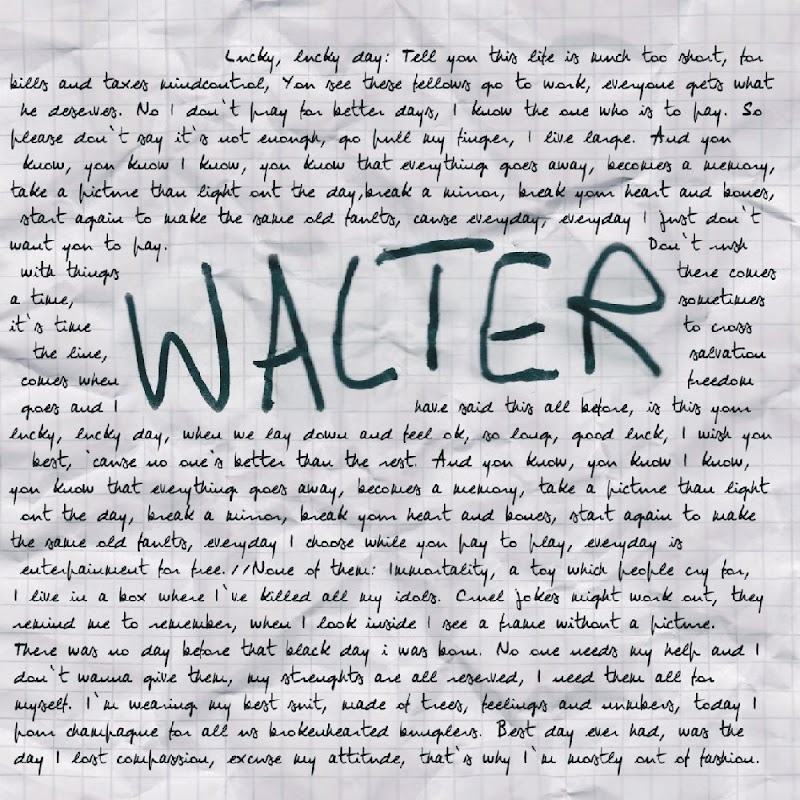 Lucky, lucky day: Tell you this life is much too short, for
bills and taxes mindcontrol, You see these fellows go to work, everyone gets what
he deserves. No I don`t pray for better days, I know the one who is to pay. So
please don`t say it`s not enough, go pull my finger, I live large. And you
know, you know I know, you know that everything goes away, becomes a memory,
take a picture than light out the day,break a mirror, break your heart and bones,
start again to make the same old faults, cause everyday, everyday I just don`t
want you to pay. Don`t rush
with things there comes
a time, sometimes
it`s time to cross
the line, salvation
comes when freedom
goes and I have said this all before, is this your
WALTER
lucky, lucky day, when we lay down and feel ok, so long, good luck, I wish you
best, `cause no one`s better than the rest. And you know, you know I know,
you know that everything goes away, becomes a memory, take a picture than light
out the day, break a mirror, break your heart and bones, start again to make
the same old faults, everyday I choose while you pay to play, everyday is
enterpainment for free.//None of them: Immortality, a toy which people cry for,
I live in a box where I`ve killed all my idols. Cruel jokes might work out, they
remind me to remember, when I look inside I see a frame without a picture.
There was no day before that black day i was born. No one needs my help and I
don`t wanna give them, my strenghts are all reserved, I need them all for
myself. I`m wearing my best suit, made of trees, feelings and numbers, today I
pour champagne for all us brokenhearted bunglers. Best day ever had, was the
day I lost compassion, excuse my attitude, that`s why I`m mostly out of fashion.